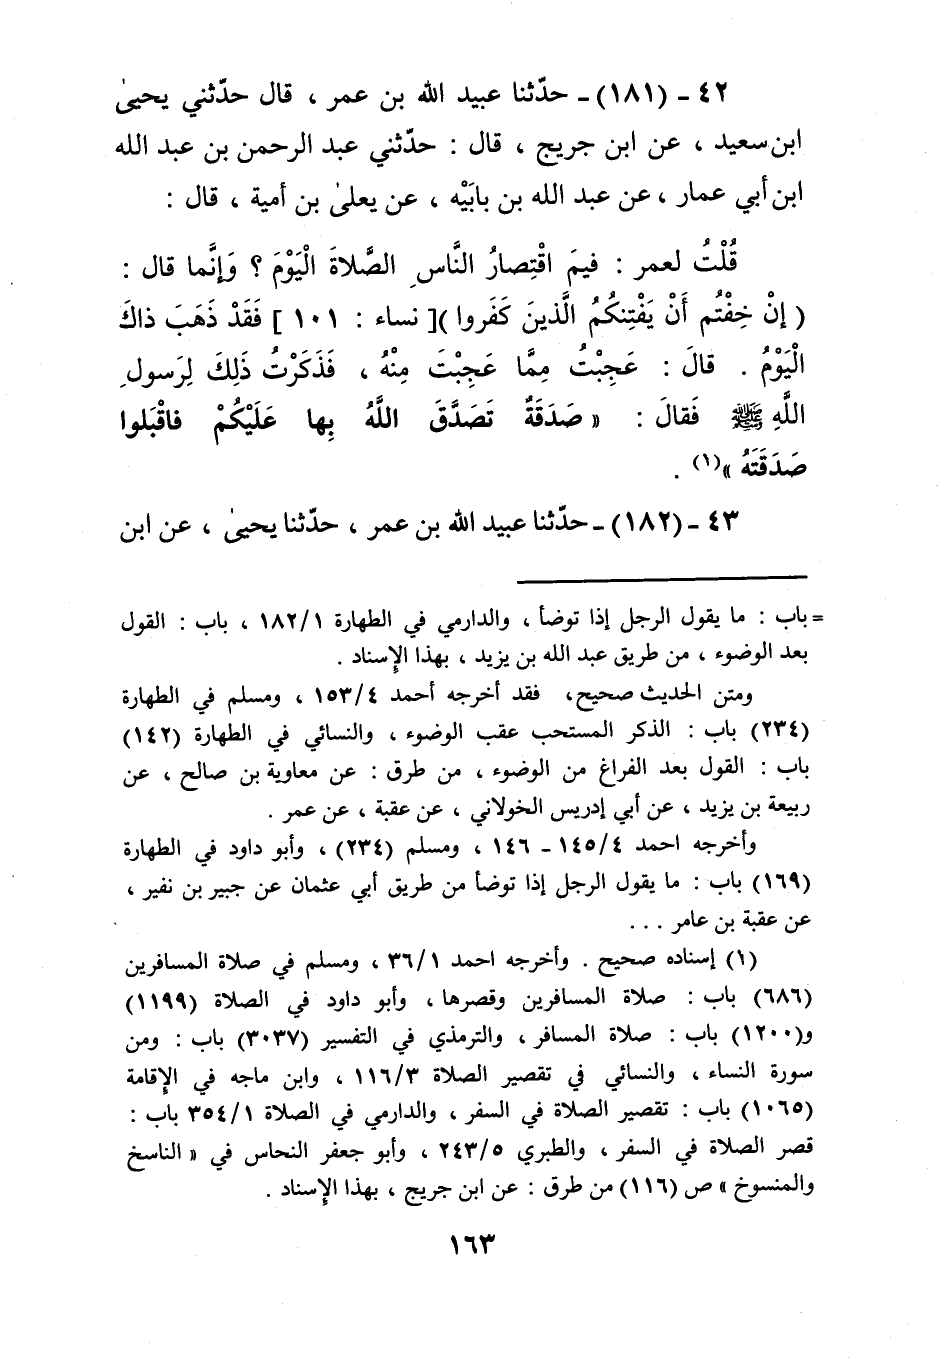 ٤٢ - (١٨١) - حدّثنا عبيد الله بن عمر ، قال حدّثني يحيىٰ
ابن سعيد ، عن ابن جريج ، قال : حدّثني عبد الرحمن بن عبد الله
ابن أبي عمار ، عن عبد الله بن بابَيْه ، عن يعلىٰ بن أمية ، قال :
قُلْتُ لعمر : فيمَ اقْتِصارُ النَّاسِ الصَّلاةَ الْيَوْمَ ؟ وَإنَّما قال :
( إنْ خِفْتُم أَنْ يَفْتِنكُمُ الَّذينَ كَفَروا )[ نساء : ١٠١ ] فَقَدْ ذَهَبَ ذاكَ
الْيَوْمُ . قالَ : عَجِبْتُ مِمَّا عَجِبْتَ مِنْهُ ، فَذَكَرْتُ ذَلِكَ لِرَسولِ
اللَّهِ ﷺ فَقالَ : « صَدَقَةٌ تَصَدَّقَ اللَّهُ بِها عَلَيْكُمْ فاقْبَلوا
صَدَقَتَهُ »(١) .
٤٣ - (١٨٢) - حدّثنا عبيد الله بن عمر ، حدّثنا يحيىٰ ، عن ابن
= باب : ما يقول الرجل إذا توضأ ، والدارمي في الطهارة ١٨٢/١ ، باب : القول
بعد الوضوء ، من طريق عبد الله بن يزيد ، بهذا الإسناد .
ومتن الحديث صحيح، فقد أخرجه أحمد ١٥٣/٤ ، ومسلم في الطهارة
(٢٣٤) باب : الذكر المستحب عقب الوضوء ، والنسائي في الطهارة (١٤٢)
باب : القول بعد الفراغ من الوضوء ، من طرق : عن معاوية بن صالح ، عن
ربيعة بن يزيد ، عن أبي إدريس الخولاني ، عن عقبة ، عن عمر .
وأخرجه احمد ١٤٥/٤ - ١٤٦ ، ومسلم (٢٣٤) ، وأبو داود في الطهارة
(١٦٩) باب : ما يقول الرجل إذا توضأ من طريق أبي عثمان عن جبير بن نفير ،
عن عقبة بن عامر ...
(١) إسناده صحيح . وأخرجه احمد ٣٦/١ ، ومسلم في صلاة المسافرين
(٦٨٦) باب : صلاة المسافرين وقصرها ، وأبو داود في الصلاة (١١٩٩)
و(١٢٠٠) باب : صلاة المسافر ، والترمذي في التفسير (٣٠٣٧) باب : ومن
سورة النساء ، والنسائي في تقصير الصلاة ١١٦/٣ ، وابن ماجه في الإقامة
(١٠٦٥) باب : تقصير الصلاة في السفر ، والدارمي في الصلاة ٣٥٤/١ باب :
قصر الصلاة في السفر ، والطبري ٢٤٣/٥ ، وأبو جعفر النحاس في « الناسخ
والمنسوخ » ص (١١٦) من طرق : عن ابن جريج ، بهذا الإسناد .
١٦٣